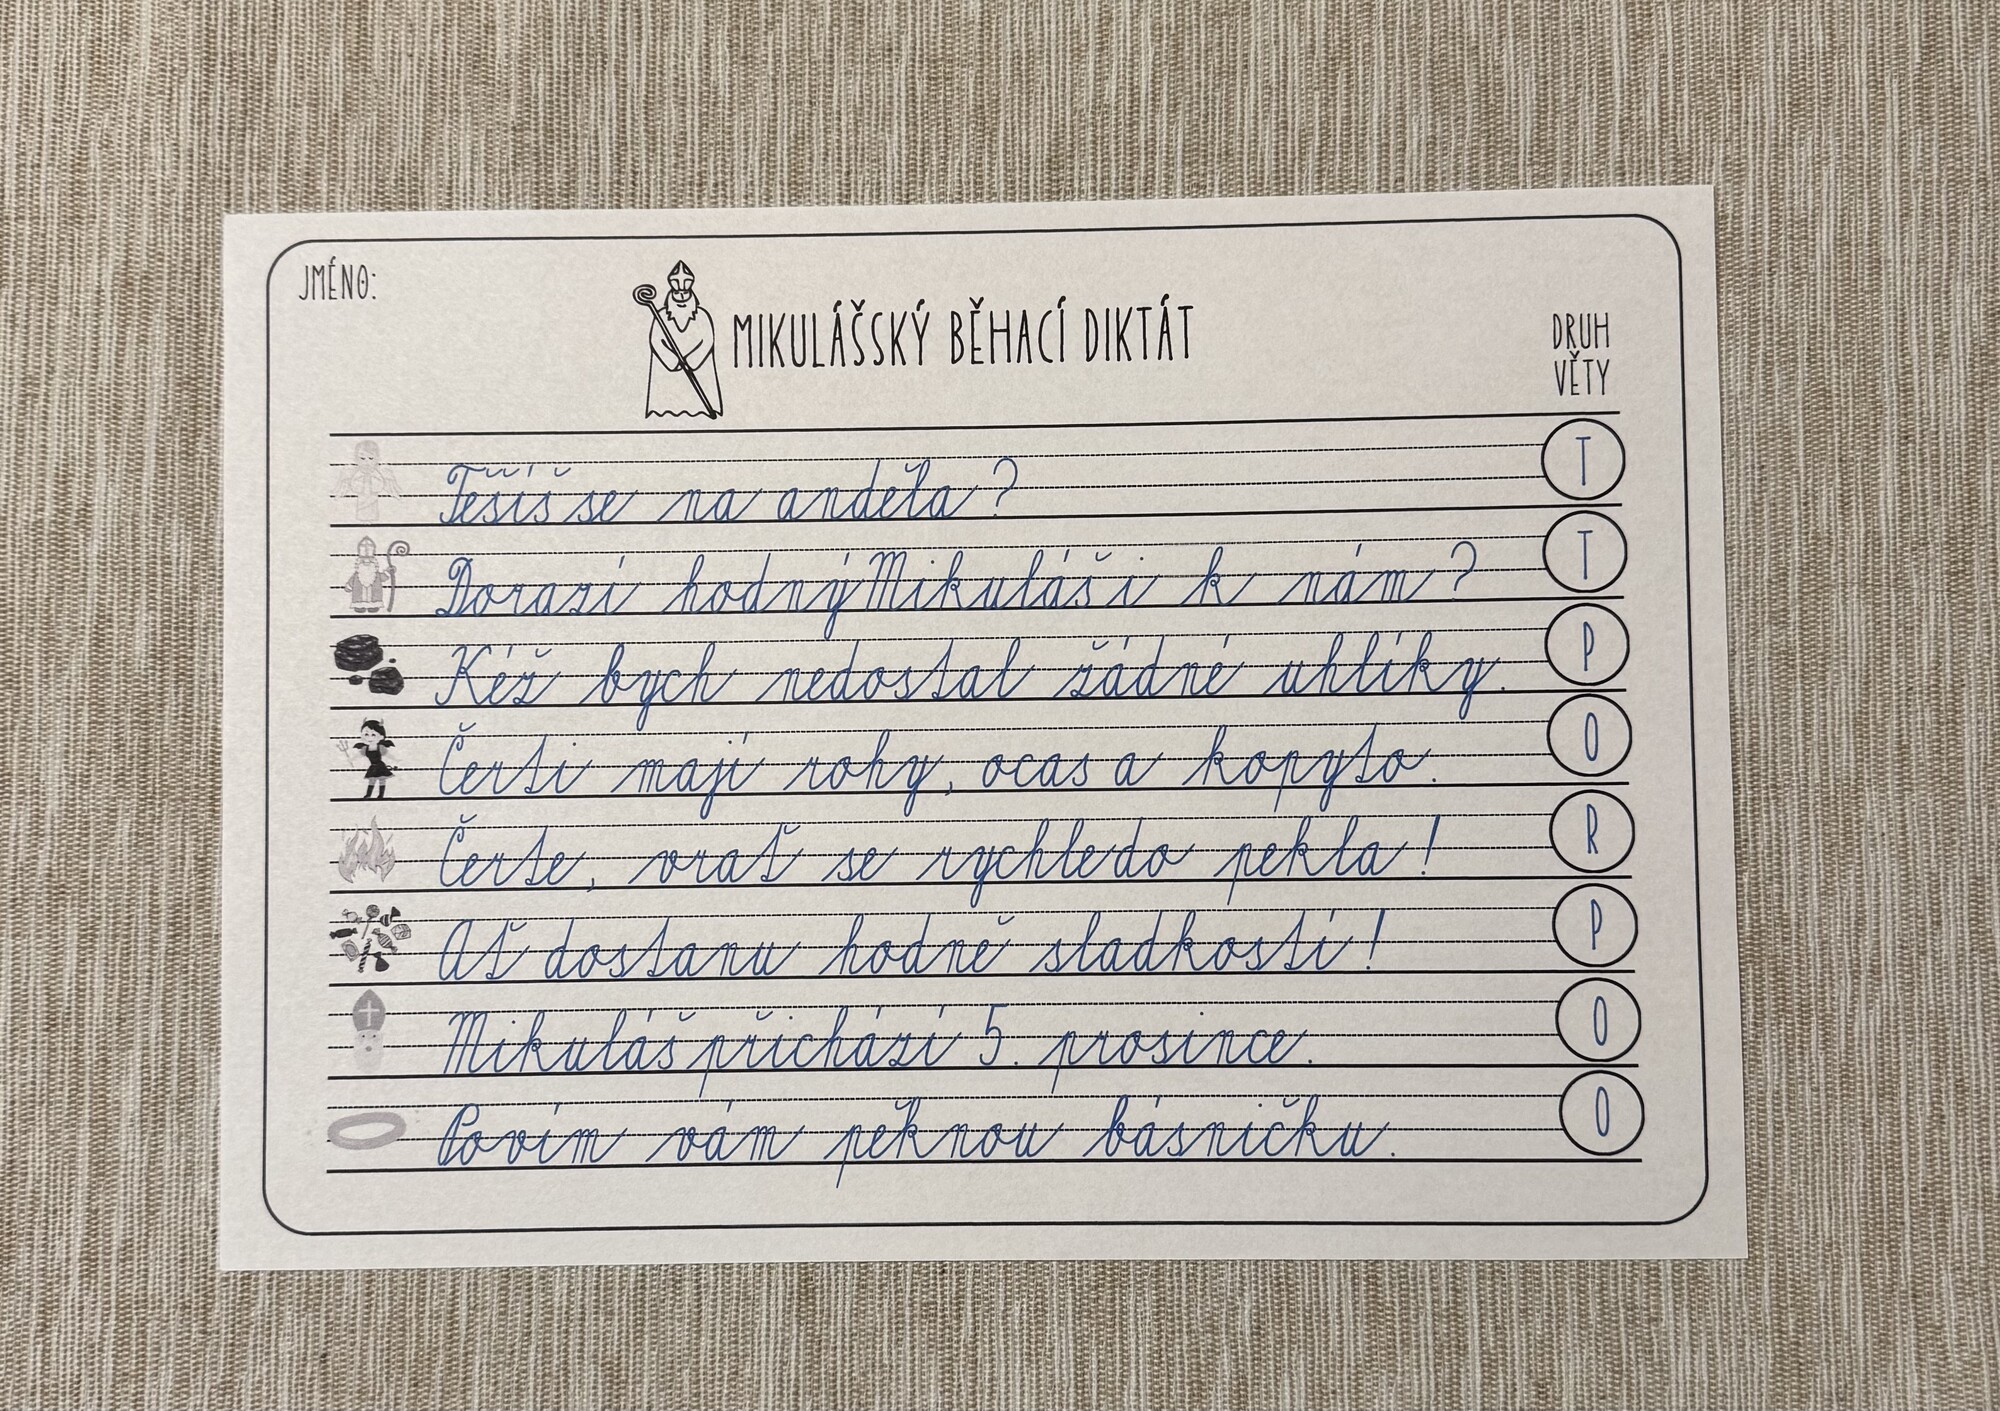 JMÉNO:
MIKULÁŠSKÝ BĚHACÍ DIKTÁT
DRUH
VĚTY
Těšíš se na anděla? T
Dorazí hodný Mikuláš i k nám? T
Kéž bych nedostal žádné uhlíky. P
Čerti mají rohy, ocas a kopyto. O
Čerte, vrať se rychle do pekla! R
Ať dostanu hodně sladkostí! P
Mikuláš přichází 5. prosince. O
Povím vám pěknou básničku. O